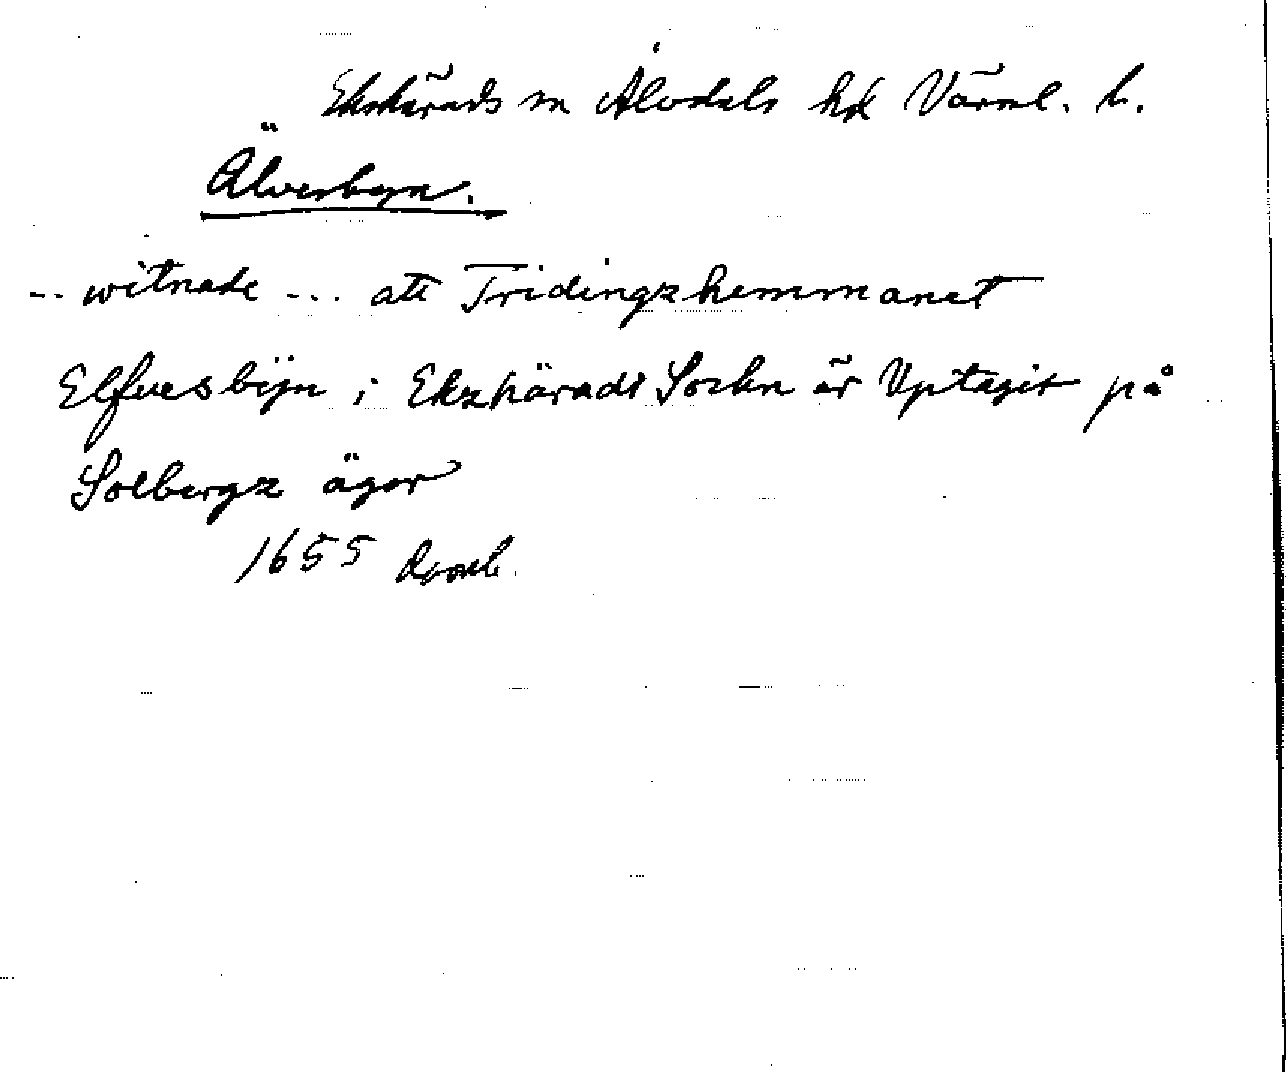 Ekshärads sn Älvdals hd Värml. l.
Älversbyn.
-- witnade ... att Tridingzhemmanet
Elfuesbijn i Ekzhäradz Sockn är Vptagit på
Solbergz ägor
1655 Domb.